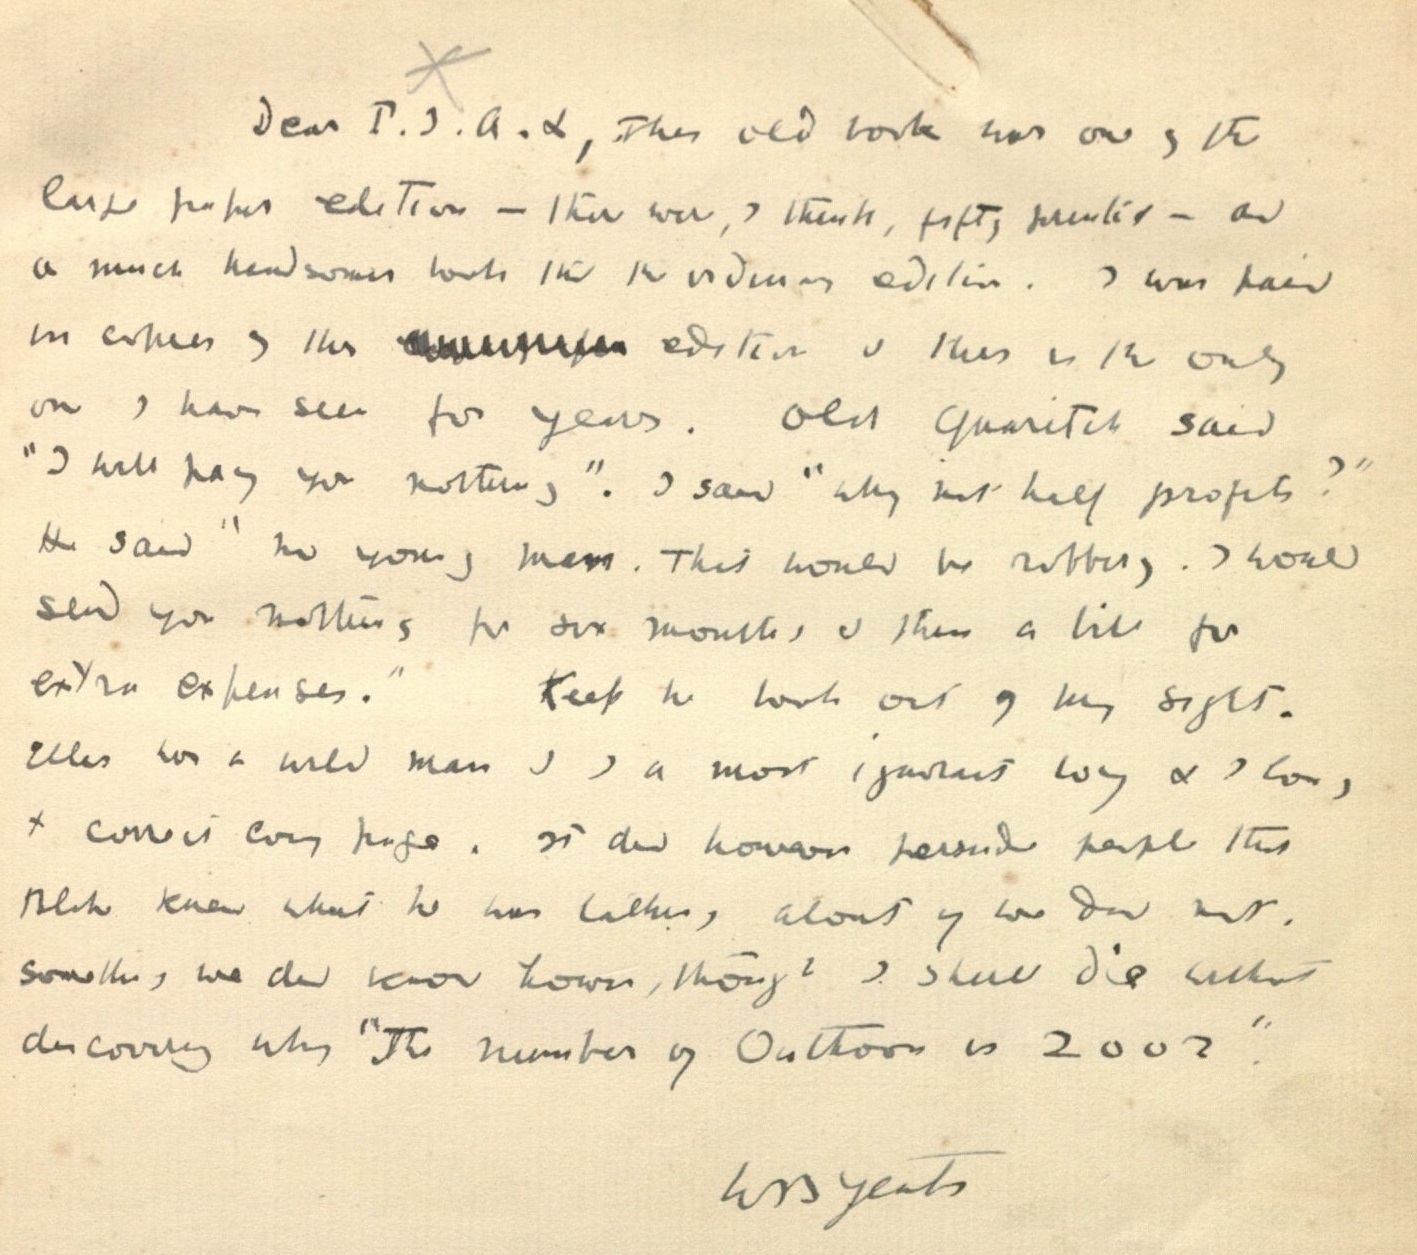 Dear P. I. A. L, This old book was one of the
large paper edition – there were, I think, fifty printed – and
a much handsomer book than the ordinary edition. I was paid
in copies of this edition & this is the only
one I have seen for years. Old Quaritch said
"I will pay you nothing". I said "why not half profits?"
He said "no young man. That would be robbery. I would
send you nothing for six months & then a bill for
extra expenses." Keep the book out of my sight.
Ellis was a wild man & I a most ignorant boy &
correct every page. It did however persuade people that
Blake knew what he was talking about if we did not.
Something we did know however, though I shall die without
discovering why "The number of Outhoon is 2002".
WB Yeats